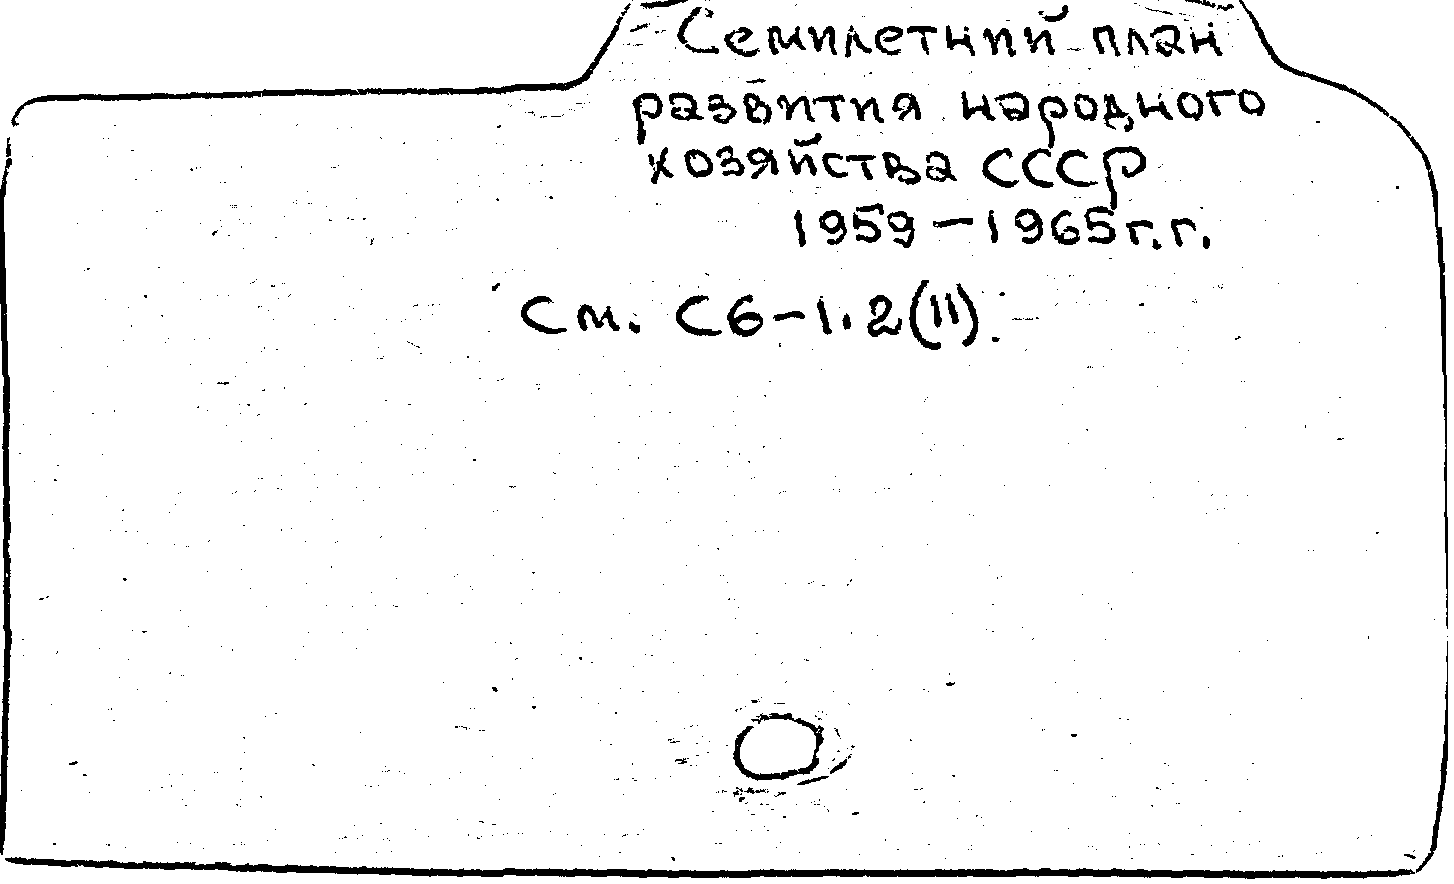 Семилетний план
развития народного
хозяйства СССР
1959-1965г.г.
См. С6-1.2(11).